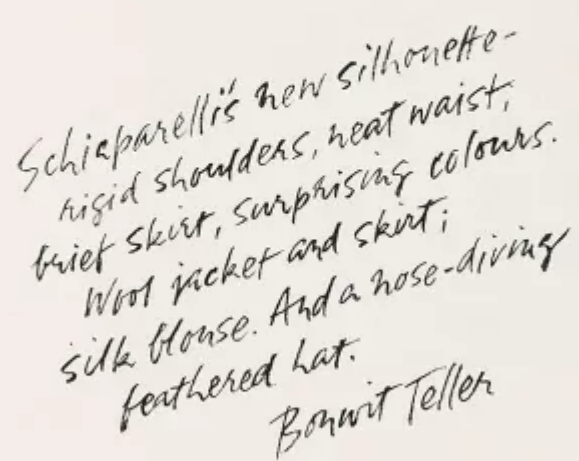 Schiaparelli's new silhouette-
rigid shoulders, neat waist,
brief skirt, surprising colours.
Wool jacket and skirt;
silk blouse. And a nose-diving
feathered hat.
Bonwit Teller